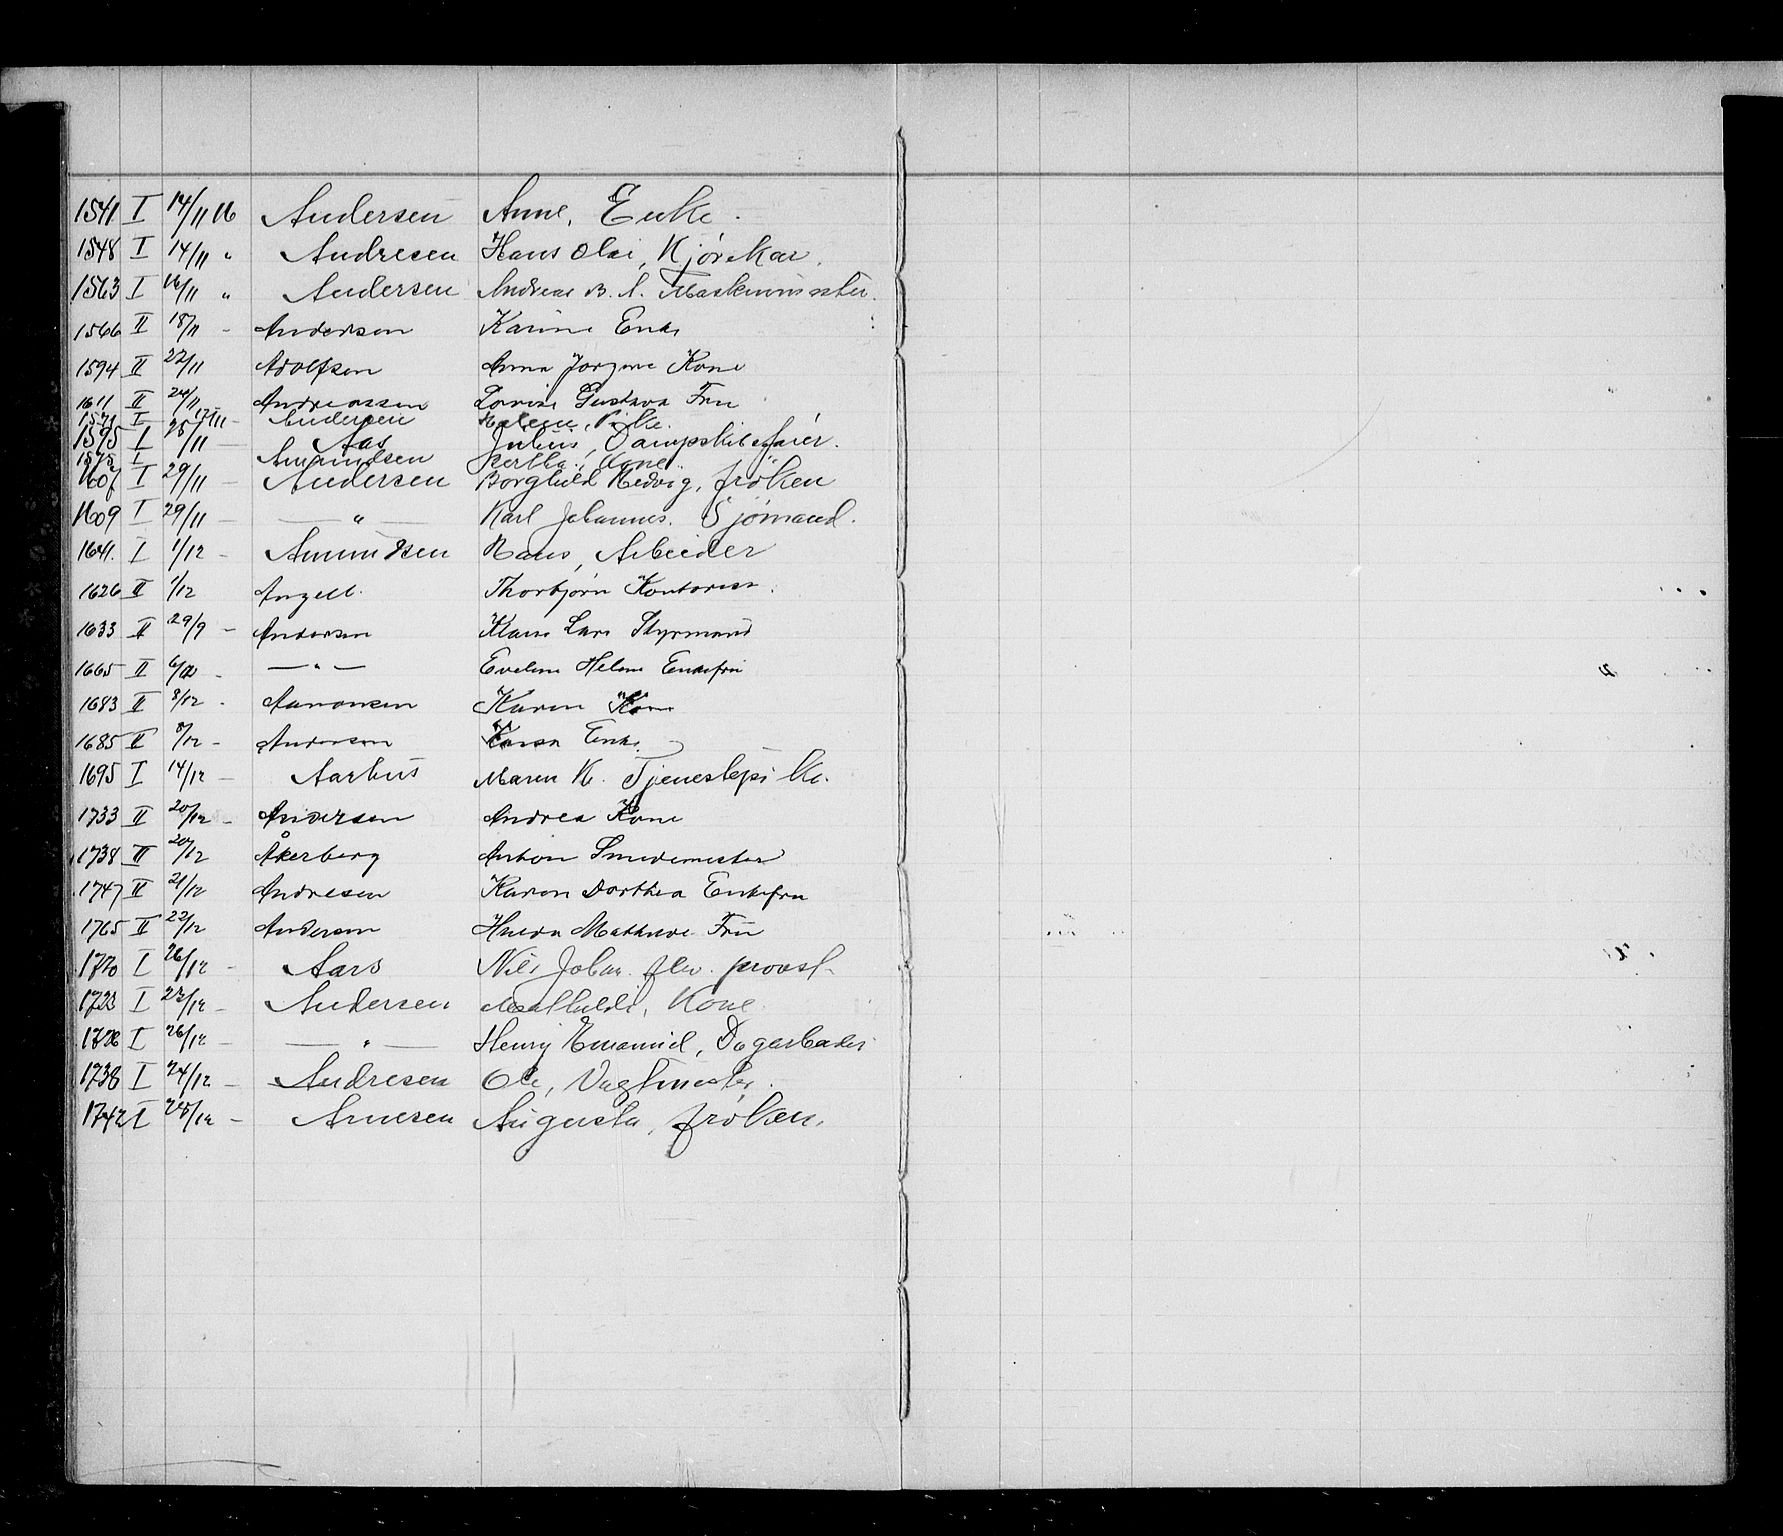 1541 I 14/11 16 Andersen Anne, Enke.
1548 I 14/11 " Andresen Hans Olai, Kjørekar.
1563 I 16/11 " Andersen Andreas B. A. Maskinmester.
1566 II 18/11 - Andersen Karine Enke
1594 II 22/11 Adolfsen Anna Jørgine Kone
1611 II 24/11 Andreassen Lovise Gustava Fru
1571 I 17/11 - Andersen Malene, Pike.
1595 I 25/11 - Aas Julius, Dampskibsfører.
1575 I Amundsen Bertha, Kone.
1607 I 29/11 - Andersen Borghild Hedvig, frøken
1609 I 29/11 - — " — Karl Johannes. Sjømand.
1641. I 1/12 - Amundsen Hans, Arbeider
1626 II 1/12 Angell. Thorbjørn Kontorist.
1633 II 29/9 - Andersen Klaus Lars Styrmand
1665 II 6/12 - — " — Eveline Helene Enkefru
1683 II 8/12 - Aanonsen Karen Kone
1685 II 8/12 - Andersen Enke.
1695 I 14/12 - Aarhus Maren K. Tjenestepike.
1733 II 20/12 - Andersen Andrea Kone
1738 II 20/12 Åkerberg Anton Smedemester
1747 II 21/12 Andresen Karen Dorthea Enkefru
1765 II 22/12 Andersen Hulda Mathilde Fru
1720 I 26/12 - Aars Nils Johan. fhv. provst.
1723 I 22/12 - Andersen Mathilde, Kone.
1728 I 26/12 - — " — Henry Emanuel, Dagarbeider
1738 I 24/12 - Andresen Ole, Vagtmester.
1742 I 28/12 - Arnesen Augusta, frøken.